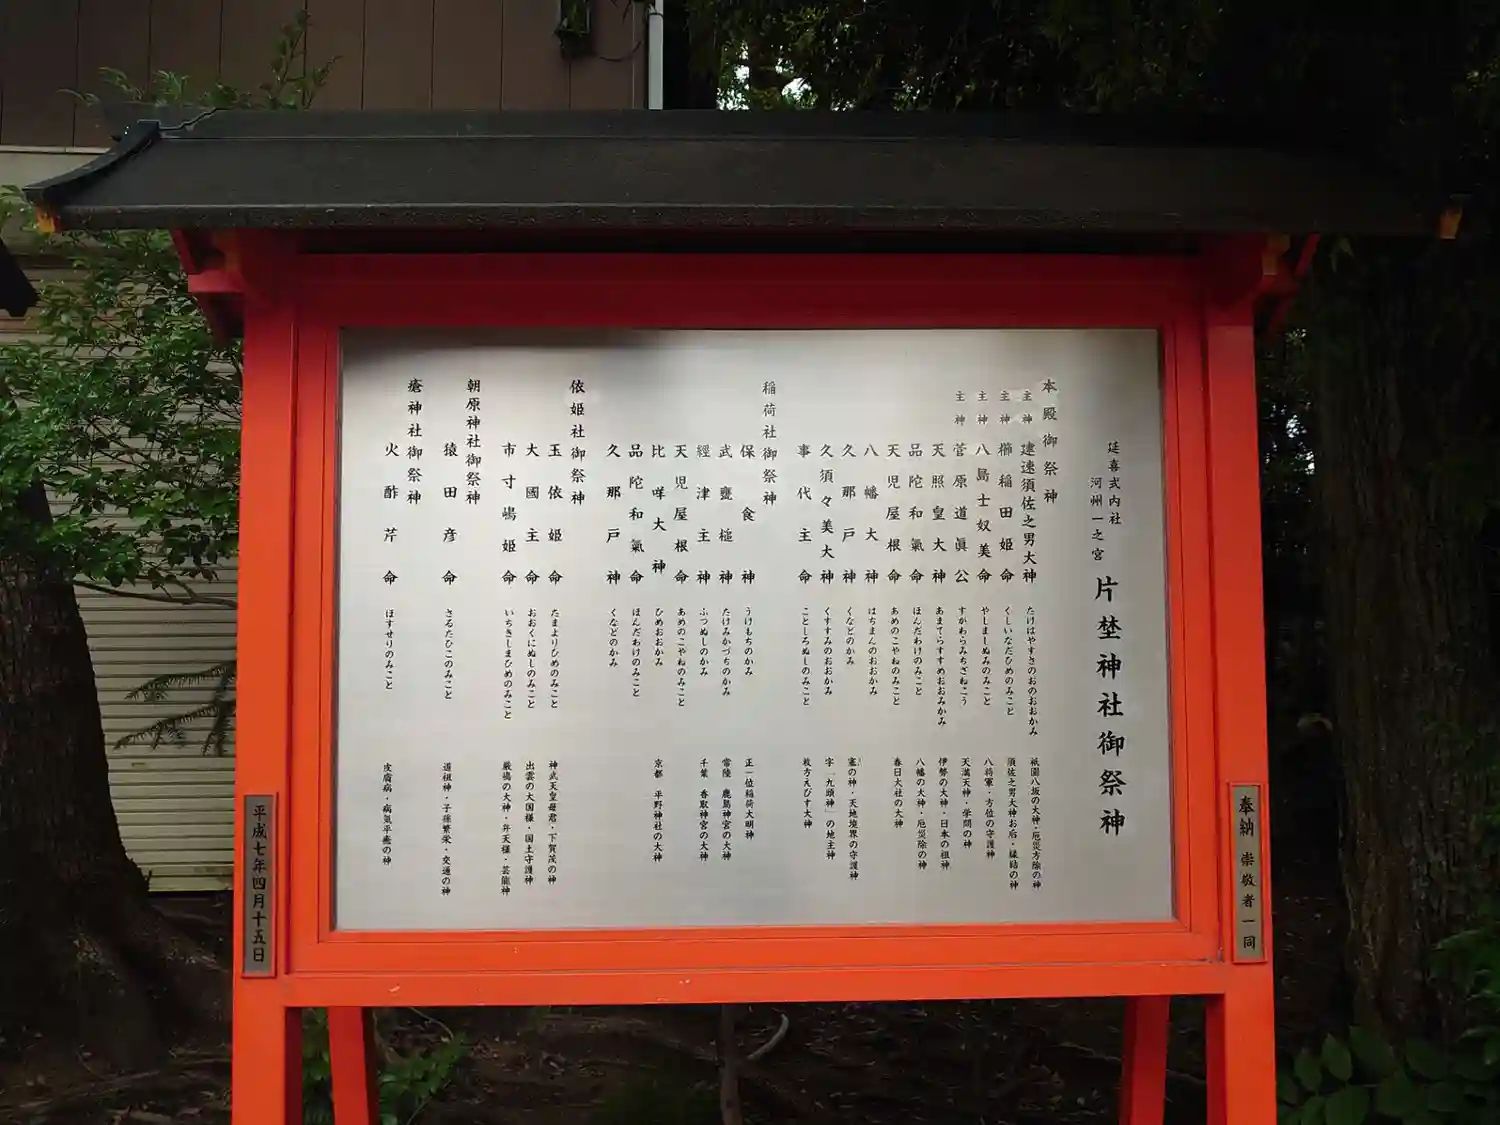 延喜式内社
河州一之宮
片埜神社御祭神
本殿御祭神
主神 建速須佐之男大神 たけはやすさのおのおおかみ 祇園八坂の大神・厄災方除の神
主神 櫛稲田姫命 くしいなだひめのみこと 須佐之男大神お后・縁結の神
主神 八島士奴美命 やしましぬみのみこと 八将軍・方位の守護神
主神 菅原道眞公 すがわらみちざねこう 天満天神・学問の神
天照皇大神 あまてらすすめおおみかみ 伊勢の大神・日本の祖神
品陀和氣命 ほんだわけのみこと 八幡の大神・厄災除の神
天児屋根命 あめのこやねのみこと 春日大社の大神
八幡大神 はちまんのおおかみ
久那戸神 くなどのかみ 塞の神・天地境界の守護神
久須々美大神 くすすみのおおかみ 字「九頭神」の地主神
事代主命 ことしろぬしのみこと 枚方えびす大神
稲荷社御祭神
保食神 うけもちのかみ 正一位稲荷大明神
武甕槌神 たけみかづちのかみ 常陸 鹿島神宮の大神
經津主神 ふつぬしのかみ 千葉 香取神宮の大神
天児屋根命 あめのこやねのみこと
比咩大神 ひめおおかみ 京都 平野神社の大神
品陀和氣命 ほんだわけのみこと
久那戸神 くなどのかみ
依姫社御祭神
玉依姫命 たまよりひめのみこと 神武天皇母君・下賀茂の神
大國主命 おおくにぬしのみこと 出雲の大国様・国土守護神
市寸嶋姫命 いちきしまひめのみこと 厳嶋の大神・弁天様・芸能神
朝原神社御祭神
猿田彦命 さるたひこのみこと 道祖神・子孫繁栄・交通の神
瘡神社御祭神
火酢芹命 ほすせりのみこと 皮膚病・病氣平癒の神
奉納 崇敬者一同
平成七年四月十五日